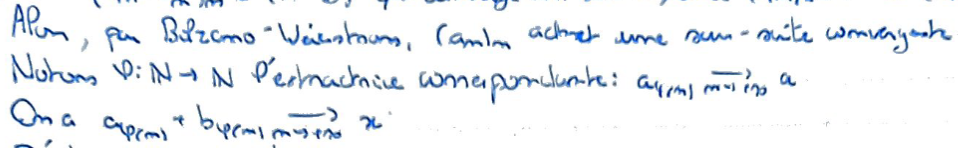 Alors, par Bolzano-Weierstrass, (an)n admet une sous-suite convergente
Notons φ: N → N l'extractrice correspondante: aφ(n) n→+∞ a
On a aφ(n) + bφ(n) n→+∞ x